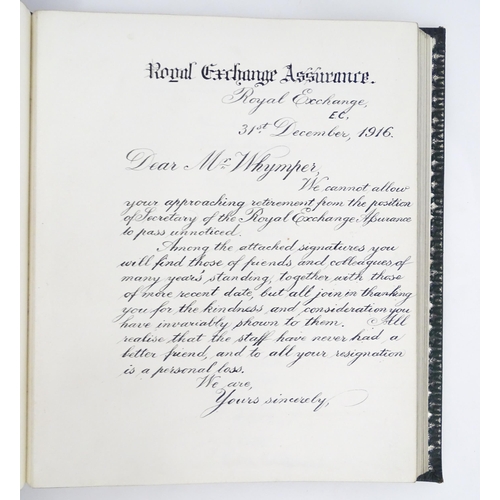 Royal Exchange Assurance.
Royal Exchange,
E.C.
31st December, 1916.
Dear Mr Whymper,
We cannot allow
your approaching retirement from the position
of Secretary of the Royal Exchange Assurance
to pass unnoticed.
Among the attached signatures you
will find those of friends and colleagues, of
many years' standing, together with those
of more recent date, but all join in thanking
you for the kindness and consideration you
have invariably shown to them. All
realise that the staff have never had a
better friend, and to all your resignation
is a personal loss.
We are,
Yours sincerely,